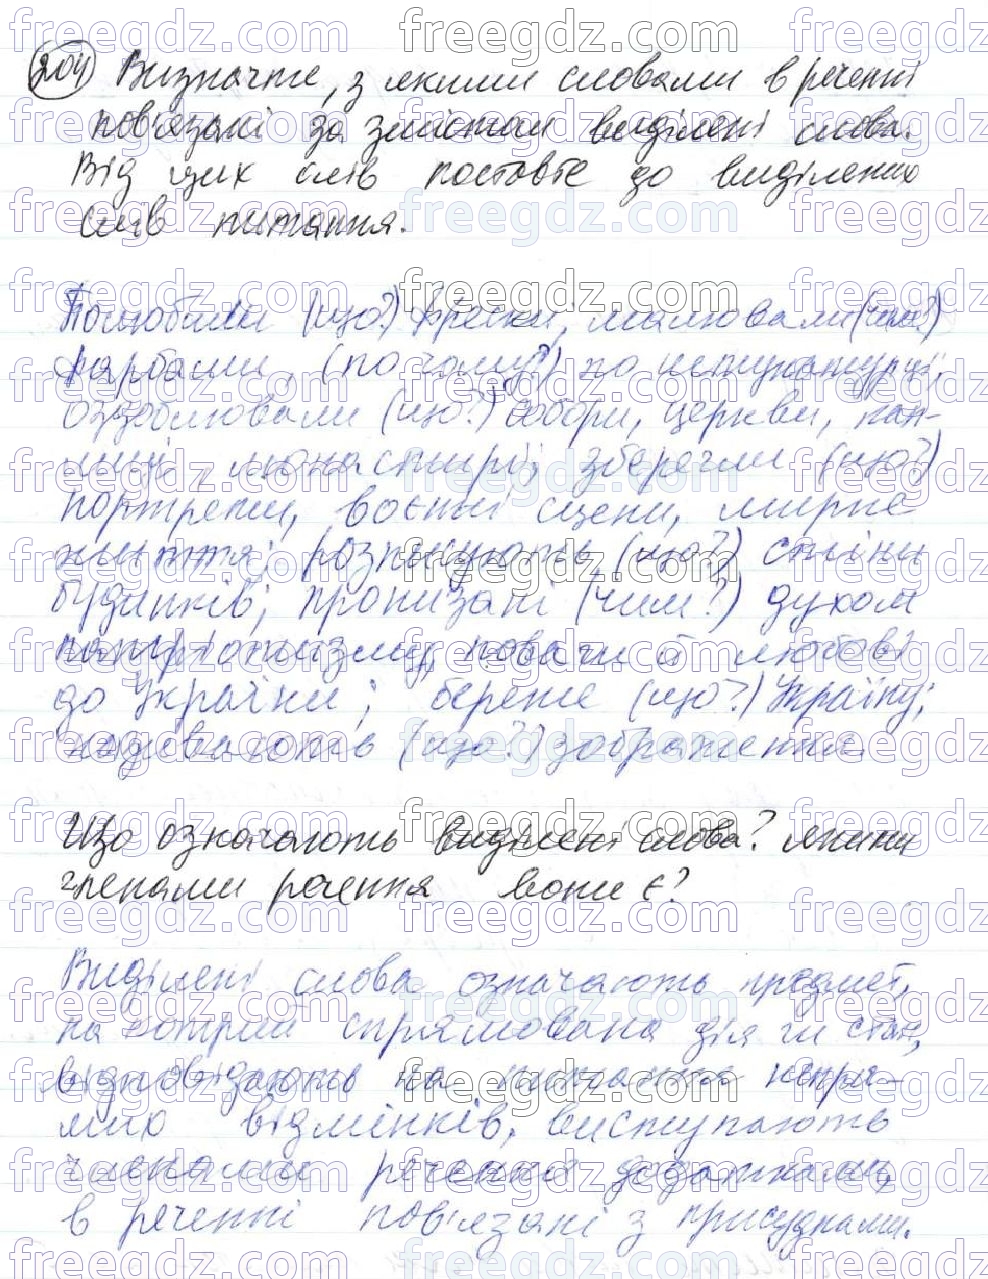 204 Визначте, з якими словами в реченні
пов'язані за змістом виділені слова.
Від цих слів поставте до виділених
слів питання.
Полюбили (що?) фрески, малювали (чим?)
фарбами, (по чому?) по штукатурці;
оздоблювали (що?) собори, церкви,
монастирі; зберегли (що?)
портрети, воєнні сцени, мирне
життя; розписують (що?) стіни
будинків; пронизані (чим?) духом
патріотизму, поваги й любові
до України; береже (що?) Україну;
називають (що?) зображення.
Що означають виділені слова? Якими
членами речення вони є?
Виділені слова означають предмет,
на котрий спрямована дія чи стан,
відповідають на питання непря-
мих відмінків, виступають
членами речення додатками,
в реченні пов'язані з присудками.
freegdz.com